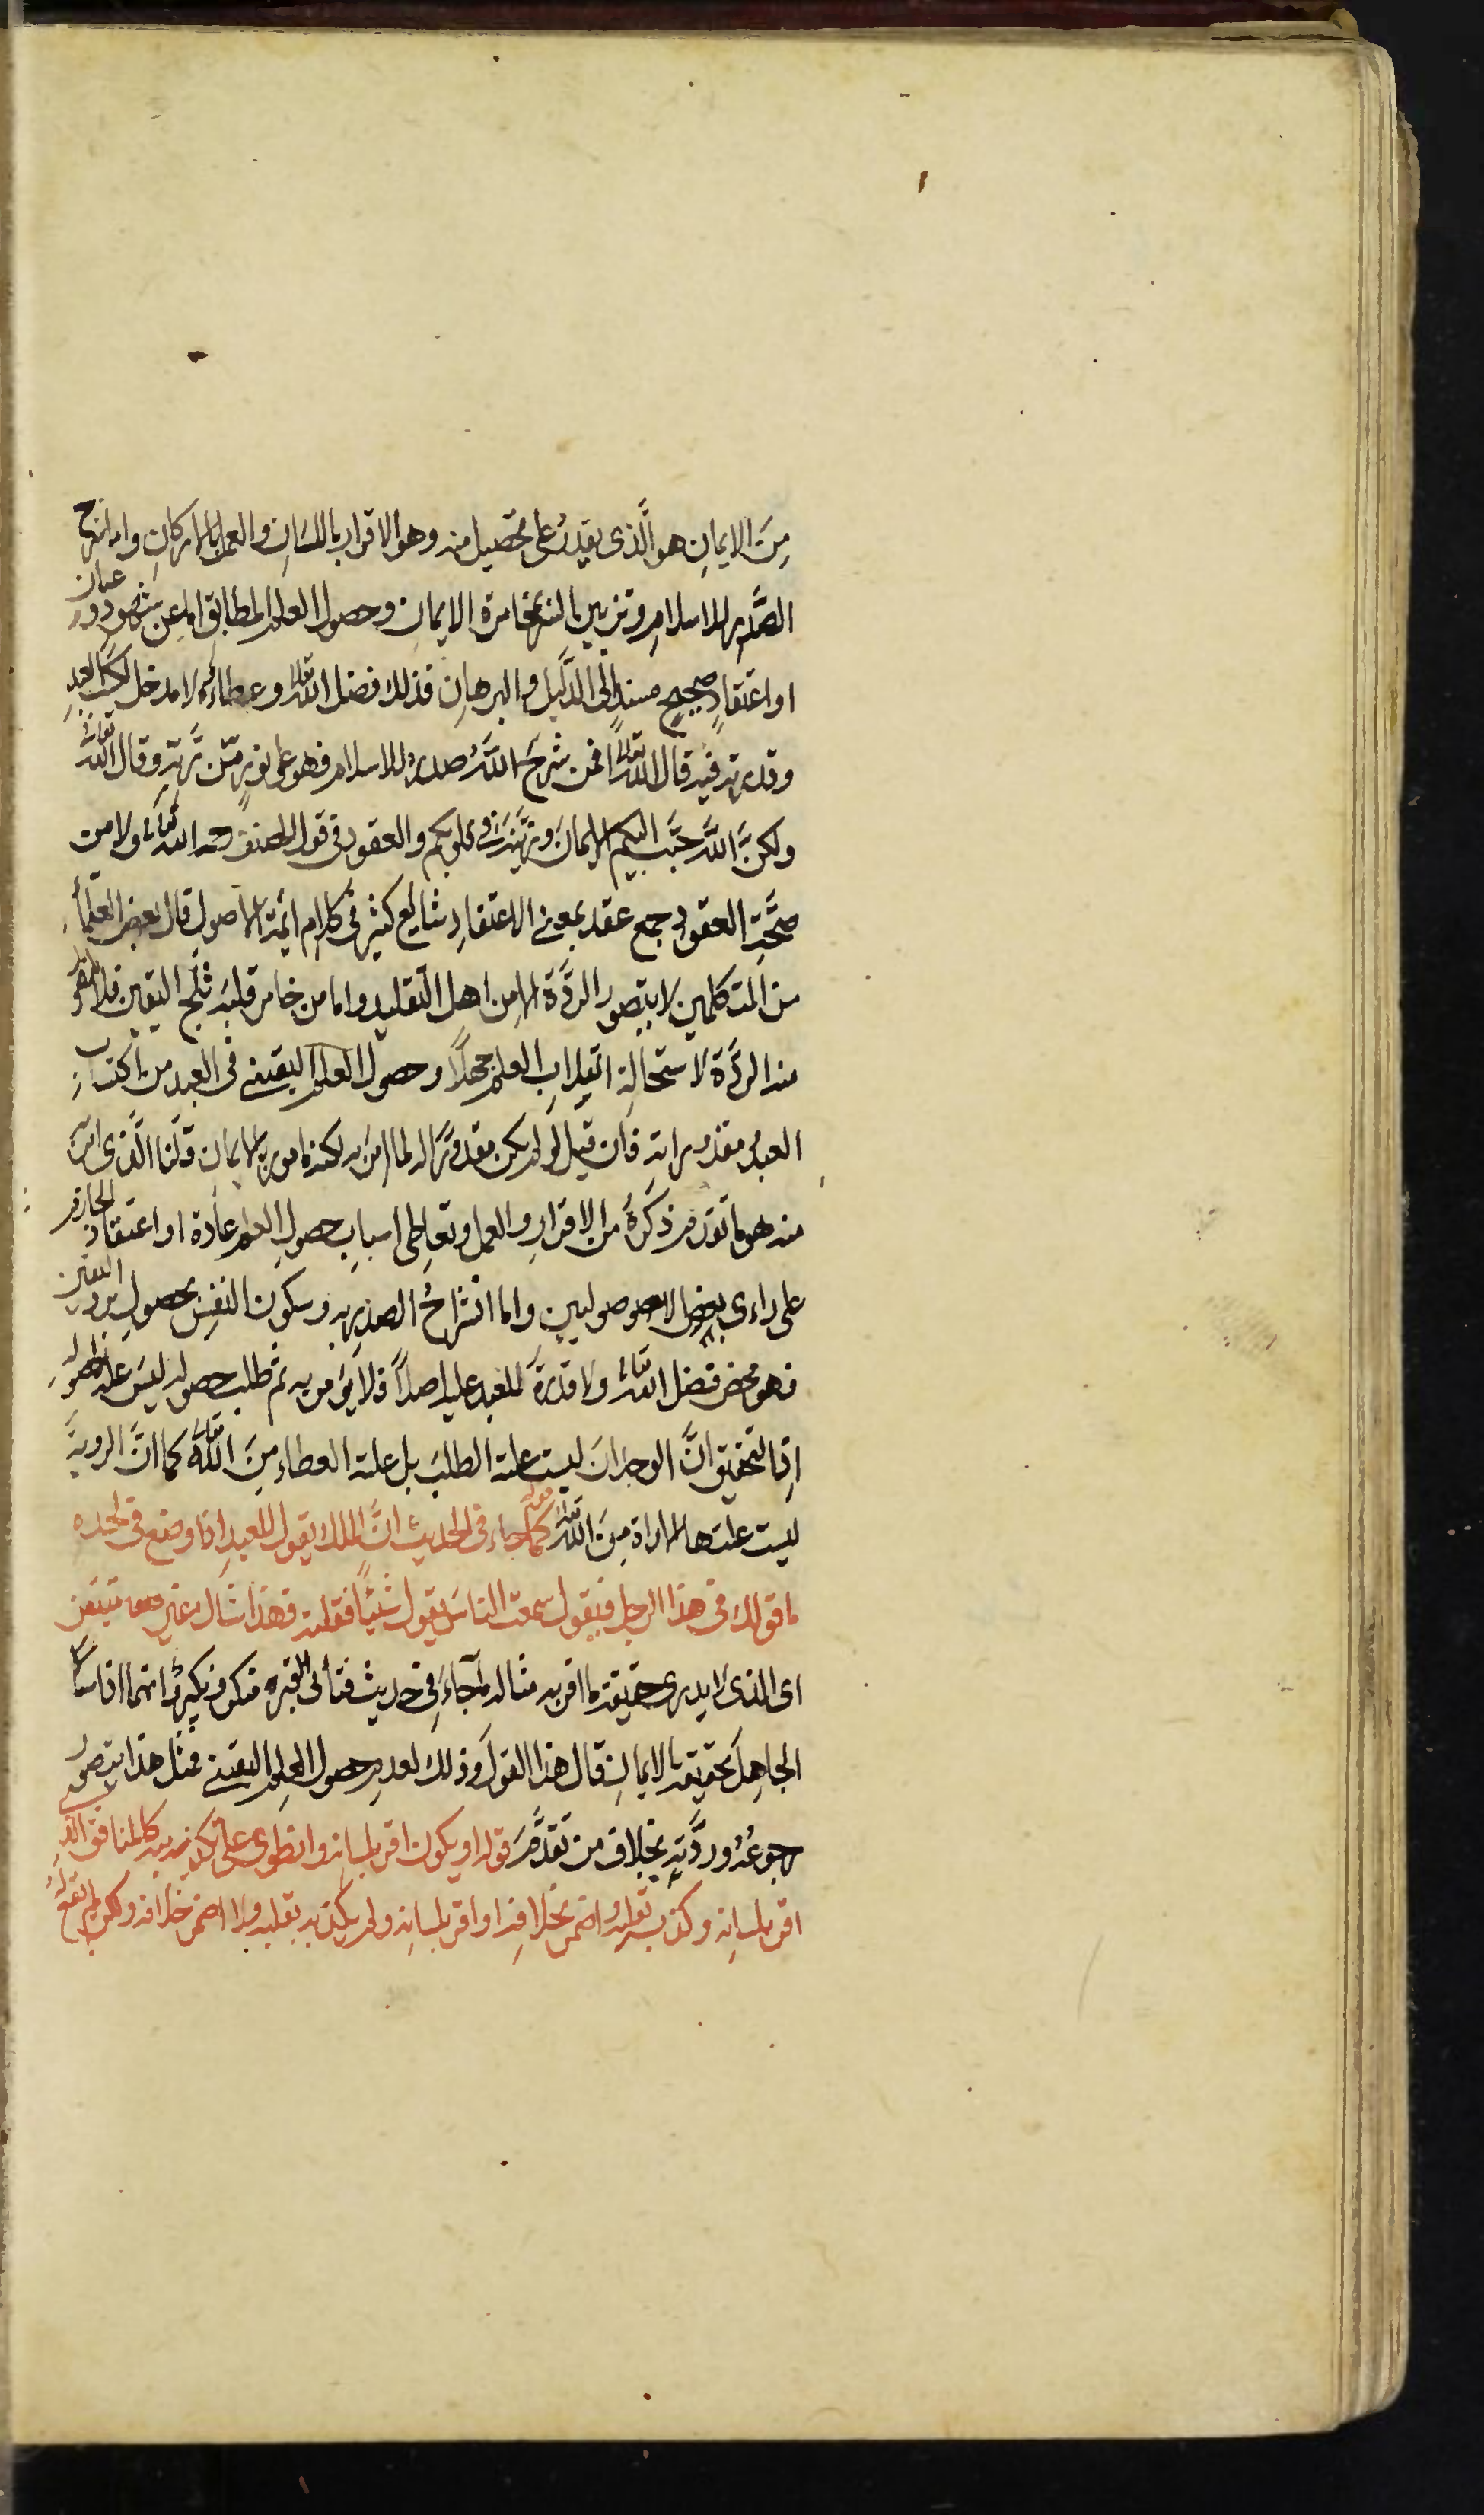 مِنَ الايمانِ هو الَّذى يقدِرُ على تحصيل منه وهو الاقرار باللسَانِ والعمل بالاركانِ واما شرح
الصَّدرِ للاسلامِ وتزيين النفس بمخامرة الايمانِ وحصول العلم المطابق اما عن شهودٍ وعيان
او اعتقادٍ صحيحٍ مسندٍ الى الدَّليل والبرهانِ فذلك فضل الله تعالى وعطاءُه لا مدخل لكسب العبدِ
وقدرته فيه قال الله تعالى افمن شرحَ اللهُ صدرهُ للاسلام فهو على نورٍ مّن رَّبّهِ وقال الله تعالى
ولكنَّ اللهَ حبَّبَ اليكم الايمانَ وزيَّنهُ فى قلوبكم والعقود فى قول المصنف رحمه الله تعالى ولا من
صحَّتِ العقودِ جمع عقد بمعنى الاعتقادِ شايع كثير فى كلام ايمة الاصول قال بعض العلمأ
من المتكلمين لا يتصور الردَّة الا من اهل التقليد واما من خامر قلبَه ثلج اليقين فلا يتصور
منه الردَّة لاستحالةِ انقلابِ العلم جهلاً وحصول العلم اليقينى فى العبد من اكتسابِ
العبدِ ومقدوراته فان قيل لو لم يكن مقدورًا له لما امر به لكنه مامور بالايمانِ قلنا الَّذى امر
منه هو ما تقدم ذكرهُ من الاقرارِ والعمل وتعاطى اسبابِ حصولِ العلم عادة او اعتقاد الجازم
على راءى بعض الاصوليين واما انشراحُ الصدر به وسكون النفسِ بحصولِ برد اليقين
فهو محض فضل الله تعالى ولا قدرةَ للعبد عليه اصلاً فلا يؤمر به ثم طلب حصوله ليسَ علة لحصولهِ
اِذِ التحقيق انَّ الوجدانَ ليست علته الطلبَ بل علته العطاء مِنَ الله تعالى كما انَّ الرويةَ
ليست علتها الاراة مِنَ الله تعالى قوله كما جاء فى الحديث انَّ الملك يقول للعبد اذا وضع فى لحده
ما قولك فى هذا الرجل فيقول سمعت الناسَ يقول شيئًا فقلته فهذا شاك غير متيقن
اى الذى لا يدرى حقيقة ما اقر به مثاله ما جاءَ فى حديث فتأنى القبر منكر ونكير انهما اذا سالا
الجاهِلَ بحقيقة الايمانِ قال هذا القول وذلك لعدم حصول العلم اليقينى فمثل هذا يتصور
رجوعُهُ وردَّته بخلاف من تقدَّمَ قوله او يكون اقر بلسانه وانطوى على تكذيبه كالمنافق الذى
اقر بلسانه وكذب بقلبه واضمر بخلافه او اقر بلسانه ولم يكذب بقلبه ولا اضمر خلافه ولكن لم يقع لهُ